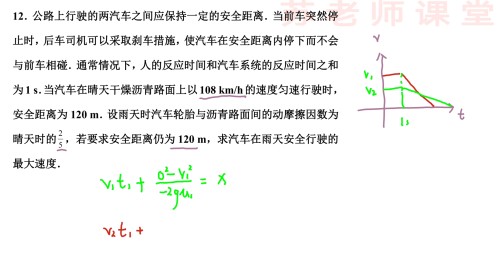 苏老师课堂
12. 公路上行驶的两汽车之间应保持一定的安全距离. 当前车突然停
止时, 后车司机可以采取刹车措施, 使汽车在安全距离内停下而不会
与前车相碰. 通常情况下, 人的反应时间和汽车系统的反应时间之和
为 1 s. 当汽车在晴天干燥沥青路面上以 108 km/h 的速度匀速行驶时,
安全距离为 120 m. 设雨天时汽车轮胎与沥青路面间的动摩擦因数为
晴天时的 2/5, 若要求安全距离仍为 120 m, 求汽车在雨天安全行驶的
最大速度.
v
v₁
v₂
1s
t
v₁t₁ + (0²-v₁²)/(-2gμ₁) = x
v₂t₁ +